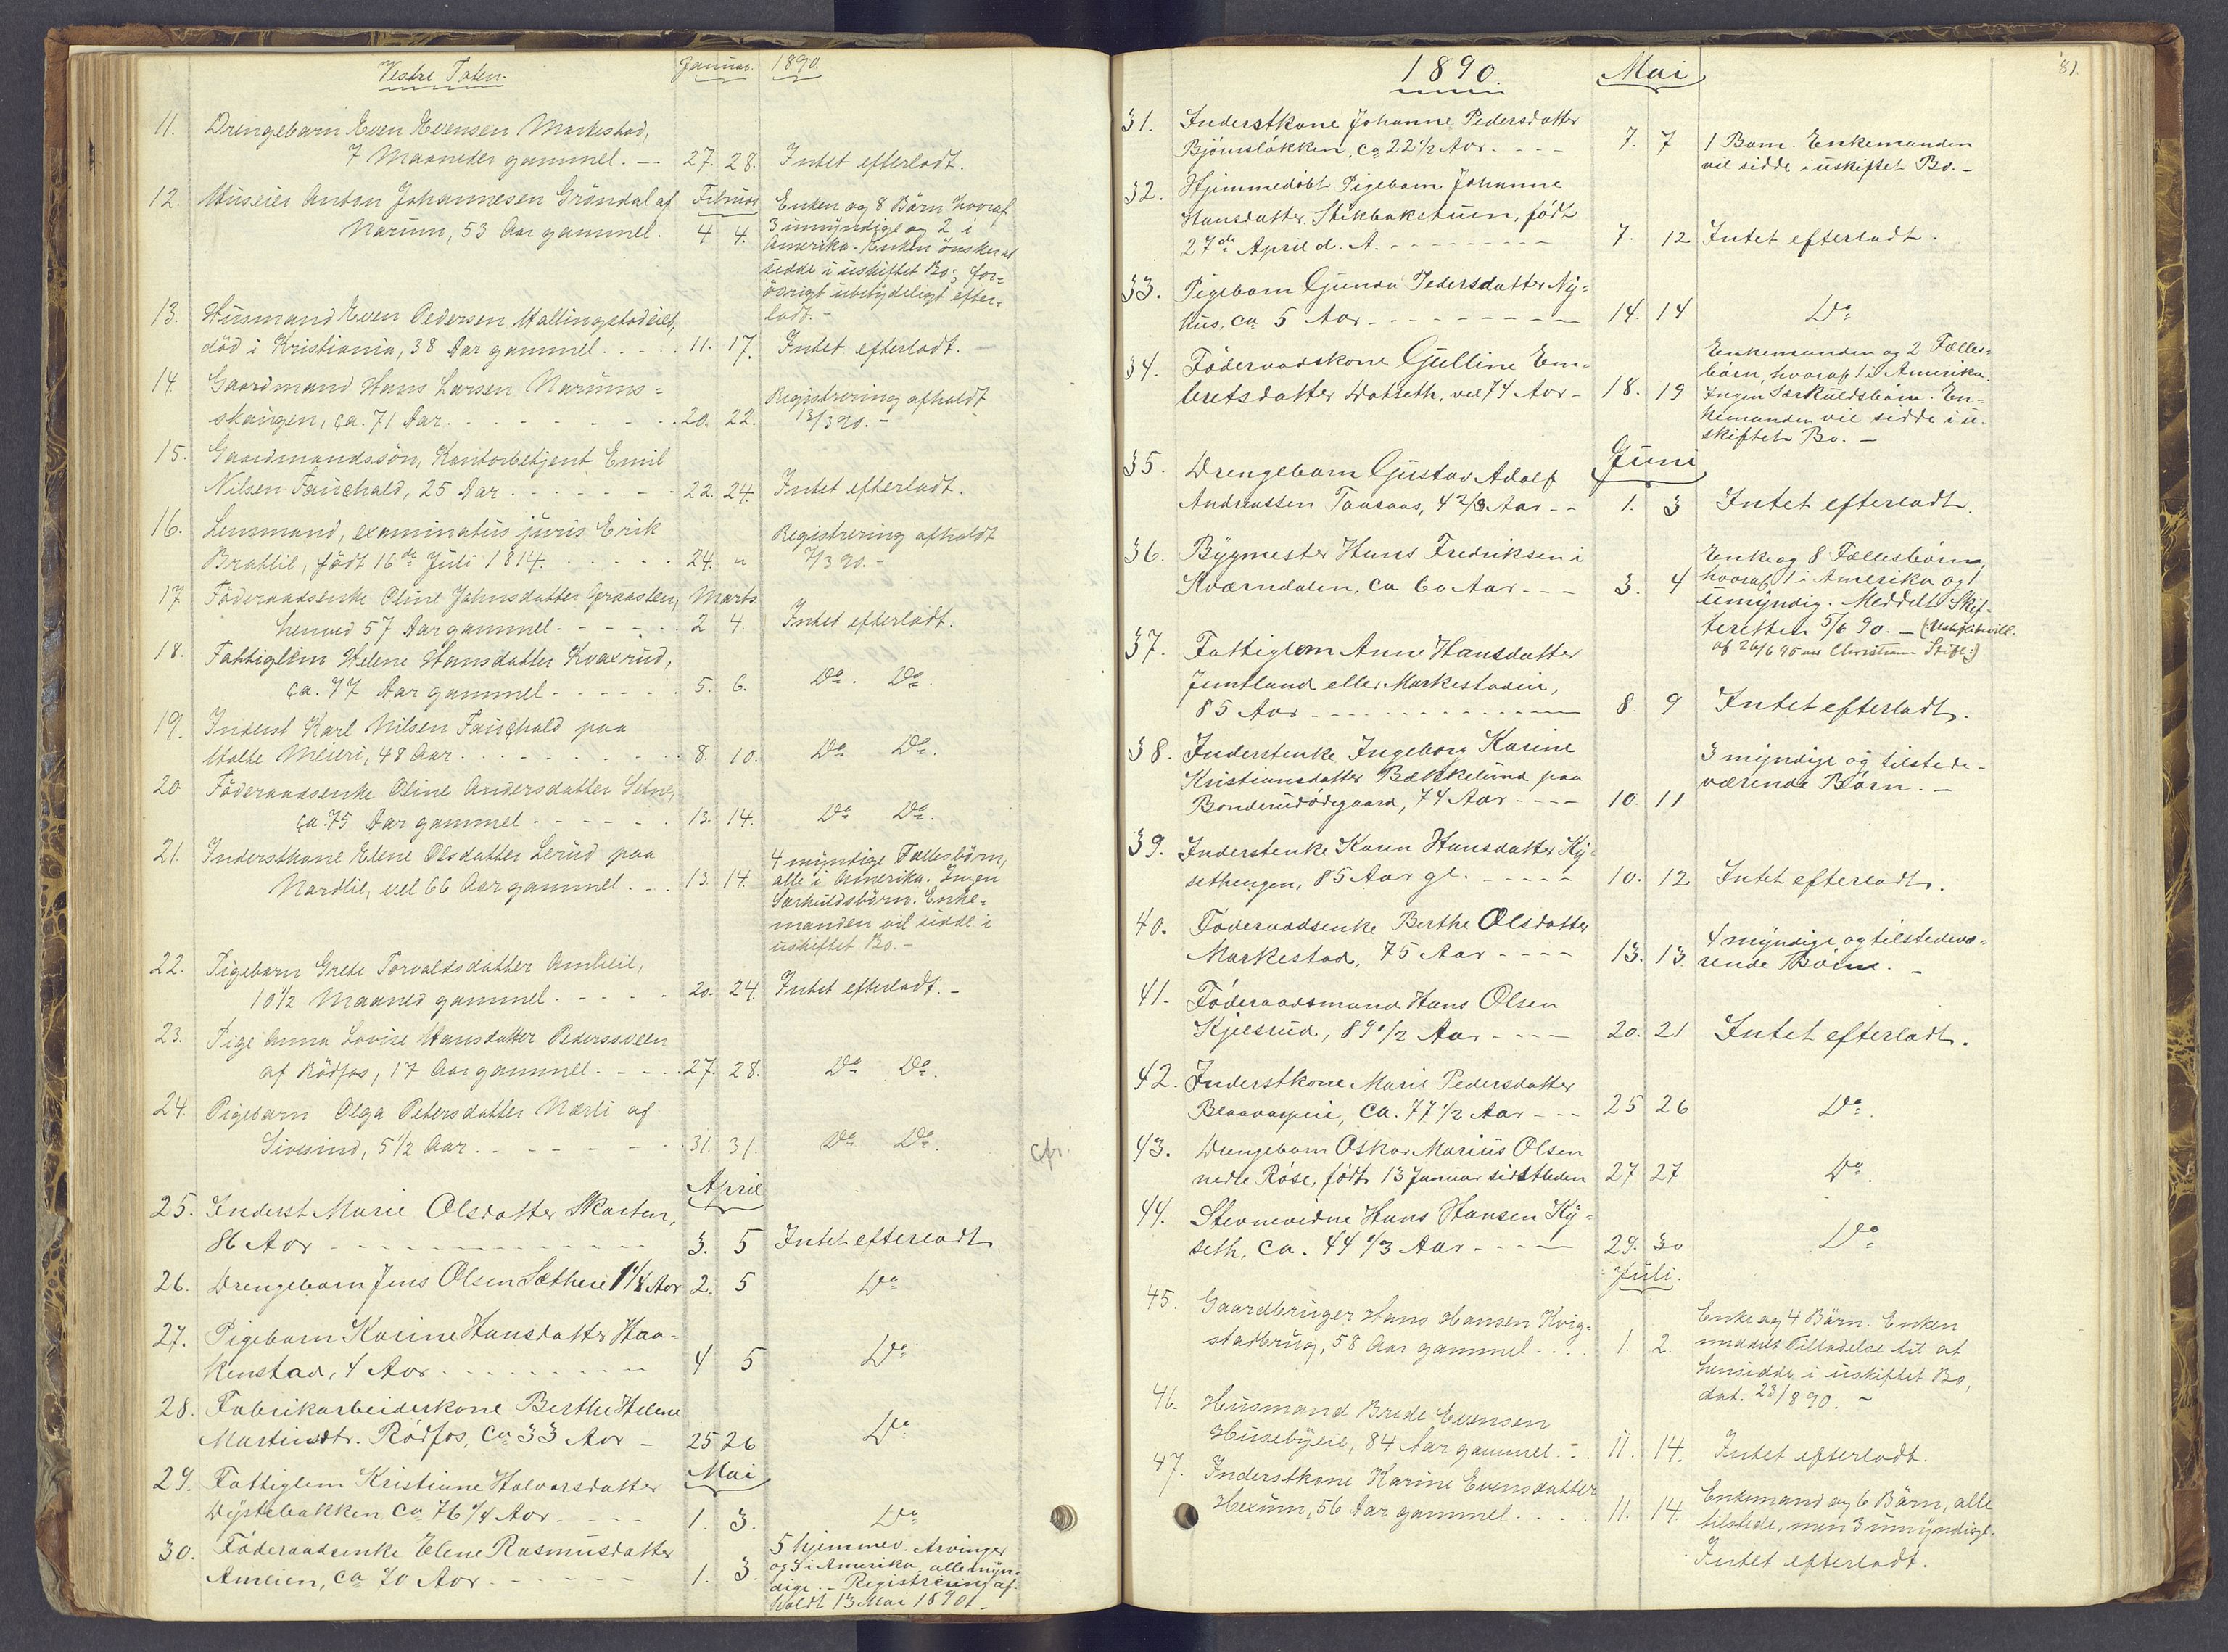 Vestre Toten. Januar. 1890.
11. Drengebarn Even Evensen Markestad,
7 Maaneder gammel. -- 27. 28. Intet efterladt.
12. Huseier Anton Johannesen Gröndal af Februar Enken og 8 Börn hvoraf
Narum, 53 Aar gammel. 4 4. 3 umyndige og 2 i
Amerika. Enken önsker at
sidde i uskiftet Bo; for=
övrigt ubetydeligt efter-
ladt. -
13. Husmand Even Pedersen Hallingstadeiet,
död i Kristiania, 38 Aar gammel. . . . . 11. 17. Intet efterladt. -
14 Gaardmand Hans Larsen Narums= Registrering afholdt
skaugen, ca. 71 Aar. . . . . . . 20. 22. 13/3 90. -
15. Gaardmandssön, Kontorbetjent Emil
Nilsen Fauchald, 25 Aar. . . . . . 22. 24. Intet efterladt.
16. Lensmand, examinatus juris Erik Registrering afholdt
Brattlil, födt 16de Juli 1814. . . . . 24. " 7/3 90. -
17 Föderaadsenke Oline Johnsdatter Graasten, Marts.
henved 57 Aar gammel. - - - . . 2 4. Intet efterladt.
18. Fattiglem Helene Hansdatter Kvaxrud,
ca. 77 Aar gammel - - - . . 5. 6. Do. Do.
19. Inderst Karl Nilsen Fauchald paa
Stolte Meieri, 48 Aar. . . . . . . 8. 10. Do Do.
20 Föderaadsenke Oline Andersdatter Setne,
ca. 75 Aar gammel - - - - . . 13. 14. Do Do.
21. Inderstkone Elene Olsdatter Lerud paa 4 myndige Fællesbörn,
Nordlie, vel 66 Aar gammel. . . 13. 14. alle i Amerika. Ingen
Særkuldsbörn. Enke-
manden vil sidde i
uskiftet Bo. -
22. Pigebarn Grete Torvaldsdatter Amlieie,
10 1/2 Maaned gammel. - - - . 20. 24. Intet efterladt. -
23. Pige Anna Lovise Hansdatter Pederssveen
af Rödfos, 17 Aar gammel. - - . . 27. 28. Do Do.
24. Pigebarn Olga Petersdatter Nærli af
Sivesind, 5 1/2 Aar. . - - - - . 31. 31. Do Do. cfr.
April
25. Inderst Marie Olsdatter Skarten,
86 Aar - - - - - - - 3. 5 Intet efterladt
26. Drengebarn Jens Olsen Sætheie 1 1/4 Aar 2. 5 Do
27. Pigebarn Karine Hansdatter Haa-
kenstad, 4 Aar - - - - - - 4 5 Do
28. Fabrikarbeiderkone Berthe Helene
Martinsdtr. Rödfos, ca 33 Aar - 25 26 Do
29. Fattiglem Kristiane Halvorsdatter Mai
Dystebakken ca 76 1/4 Aar - - - - 1. 3. Do
30. Föderaadsenke Elene Rasmusdatter 5 hjemmev. Arvinger
Amlien, ca 70 Aar - - - - - 1. 3. og 3 i Amerika, alle myn-
dige. - Registrering af-
holdt 13 Mai 1890. -
1890. Mai 81.
31. Inderstkone Johanne Pedersdatter
Björnslökken, ca 22 1/2 Aar - - - - 7. 7 1 Barn. Enkemanden
vil sidde i uskiftet Bo. -
32. Hjemmedöbt Pigebarn Johanne
Hansdatter Stikbakstuen, födt
27de April d. A. - - - - - - 7. 12 Intet efterladt.
33. Pigebarn Gunda Pedersdatter Ny=
hus, ca 5 Aar - - - - - - - 14. 14 Do
34. Föderaadskone Gulline Em- Enkemanden og 2 Fælles-
bretsdatter Watseth, vel 74 Aar - 18. 19 börn, hvoraf 1 i Amerika.
Ingen Særkuldsbörn. En-
kemanden vil sidde i u-
skiftet Bo. -
35. Drengebarn Gustav Adolf Juni
Andreassen Taasaas, 4 2/3 Aar - - 1. 3 Intet efterladt.
36. Bygmester Hans Fredriksen i Enke og 8 Fællesbörn,
Kværndalen, ca 60 Aar - - - 3. 4 hvoraf 1 i Amerika og 1
umyndig. Meddelt Skif-
teretten 5/6 90. -
af 26/6 90
37. Fattiglem Anne Hansdatter
Jemtland eller Markestadeie,
85 Aar - - - - - - - 8. 9 Intet efterladt.
38. Inderstenke Ingeborg Karine 3 myndige og tilstede-
Kristiansdatter Bækkelund paa værende Börn. -
Bonderudödegaard, 74 Aar - - - - 10. 11
39. Inderstenke Karen Hansdatter Ky-
sethengen, 85 Aar gl. - - - - - 10. 12 Intet efterladt.
40. Föderaadsenke Berthe Olsdatter 4 myndige og tilstedevæ=
Markestad, 75 Aar - - - - 13. 13 rende Börn. -
41. Föderaadsmand Hans Olsen
Kjelsrud, 89 1/2 Aar - - - - 20. 21 Intet efterladt.
42. Inderstkone Marie Pedersdatter
Blaavarpeie, ca. 77 1/2 Aar - - - 25 26 Do.
43. Drengebarn Oskar Marius Olsen
nedre Röse, födt 13 Januar sidstleden 27 27 Do.
44. Stevnevidne Hans Hansen Ky=
seth, ca. 44 1/3 Aar - - - - 29. 30 Do
Juli.
45. Gaardbruger Hans Hansen Kvig- Enke og 4 Börn. Enken
stadbrug, 58 Aar gammel - . . . 1. 2. meddelt Tilladelse til at
hensidde i uskiftet Bo,
dat. 23/8 90. -
46. Husmand Brede Evensen
Husebyeie, 84 Aar gammel. - . 11. 14. Intet efterladt.
47. Inderstkone Karine Evensdatter
Hexum, 56 Aar gammel. . . . 11. 14. Enkemand og 6 Börn, alle
tilstede, men 3 umyndige.
Intet efterladt.